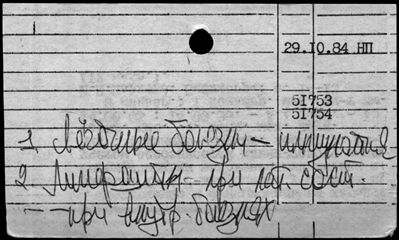 29.10.84 НП
51753
51754
1 Лёгочные болезни — иммунология
2 Лимфоциты — при пат. сост.
— при внутр. болезнях